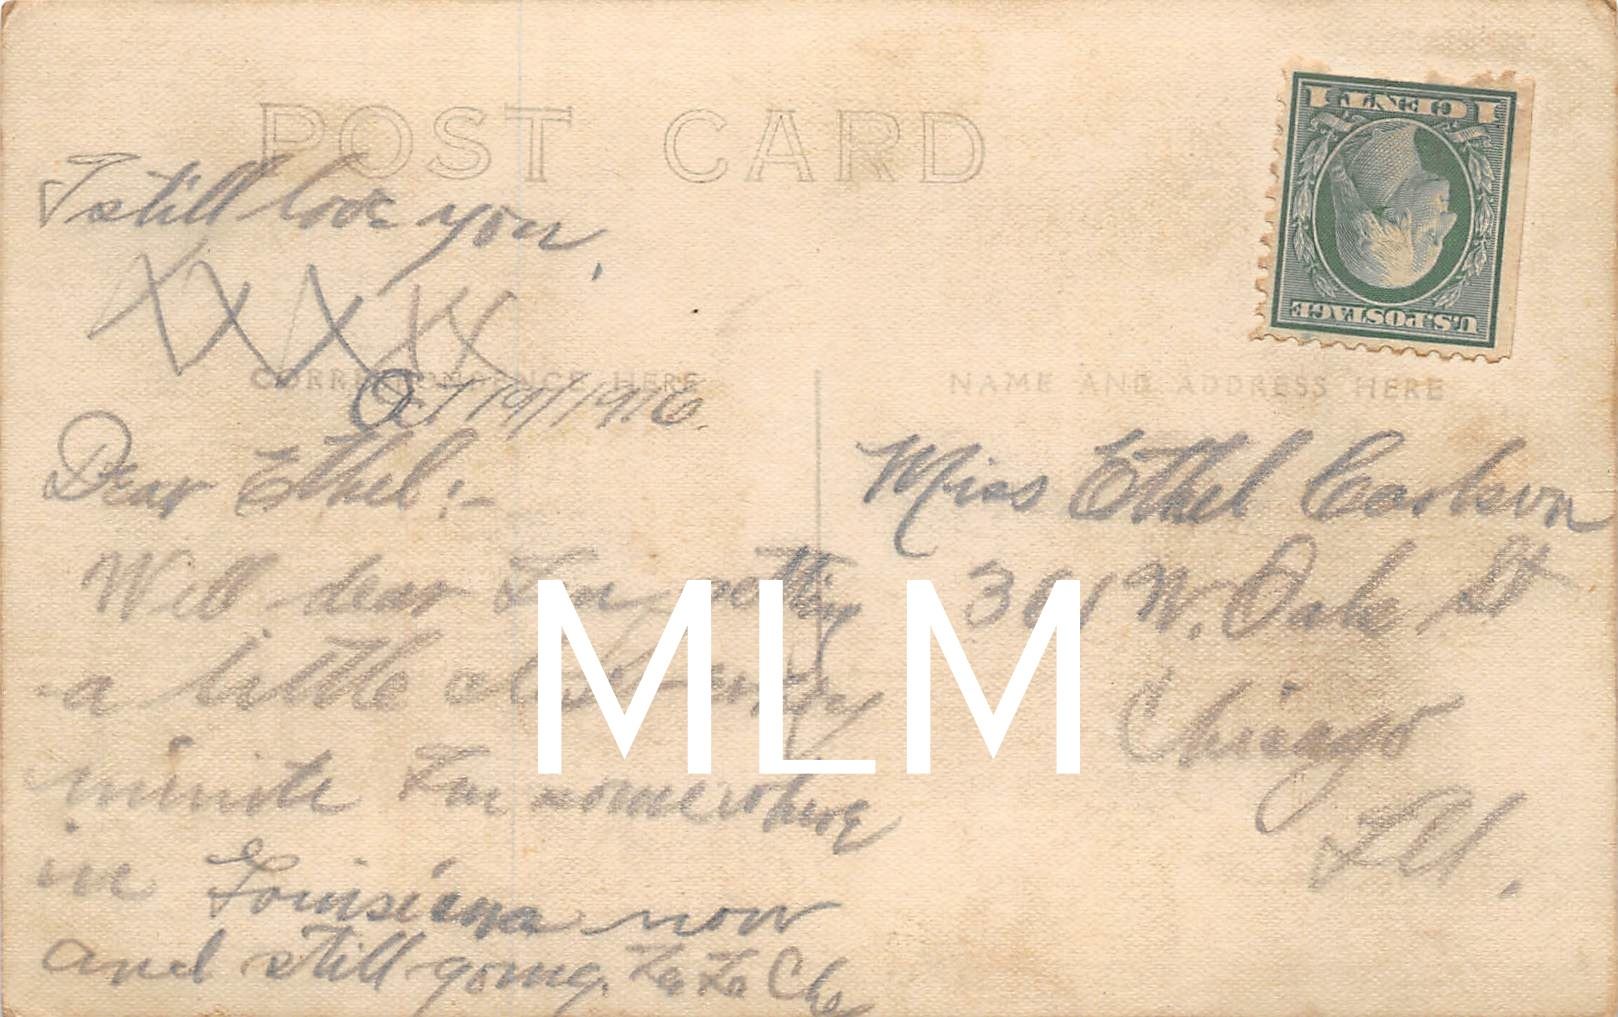 POST CARD
I still love you,
XXXXX
CORRESPONDENCE HERE
NAME AND ADDRESS HERE
Oct 19/1916.
Dear Ethel:-
Well dear I'm getting
a little closer every
minite I'm somewhere
in Louisiana now
and still going.
Miss Ethel Carlson
361 W. Oak St
Chicago
Ill.
1 CENT 1
U.S. POSTAGE
MLM